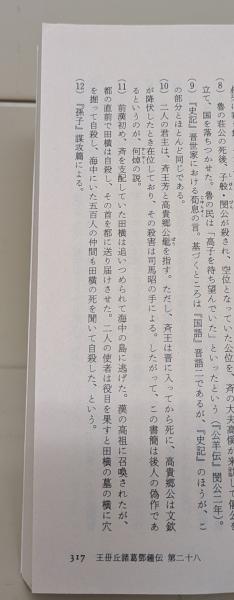 (8) 魯の荘公の死後、子般・閔公が殺され、空位となっていた公位を、斉の大夫高傒が来
立て、国を落ちつかせた。魯の民は「高子を待ち望んでいた」といったという(『公羊伝』閔公二年)。
(9) 『史記』晋世家における荀息の言。基づくところは『国語』晋語二であるが、『史記』のほうが、こ
の部分とほとんど同じである。
(10) 二人の君主は、斉王芳と高貴郷公髦を指す。ただし、斉王は晋に入ってから死に、高貴郷公は文欽
が降伏したとき在位しており、その殺害は司馬昭の手による。したがって、この書簡は後人の偽作であ
るというのが、何焯の説。
(11) 前漢初め、斉を支配していた田横は追いつめられて海中の島に逃げた。漢の高祖に召喚されたが、
都の直前で田横は自殺し、その首を都に送り届けさせた。二人の使者は役目を果すと田横の墓の横に穴
を掘って自殺し、海中にいた五百人の仲間も田横の死を聞いて自殺した、という。
(12) 『孫子』謀攻篇による。
317 王毌丘諸葛鄧鍾伝 第二十八